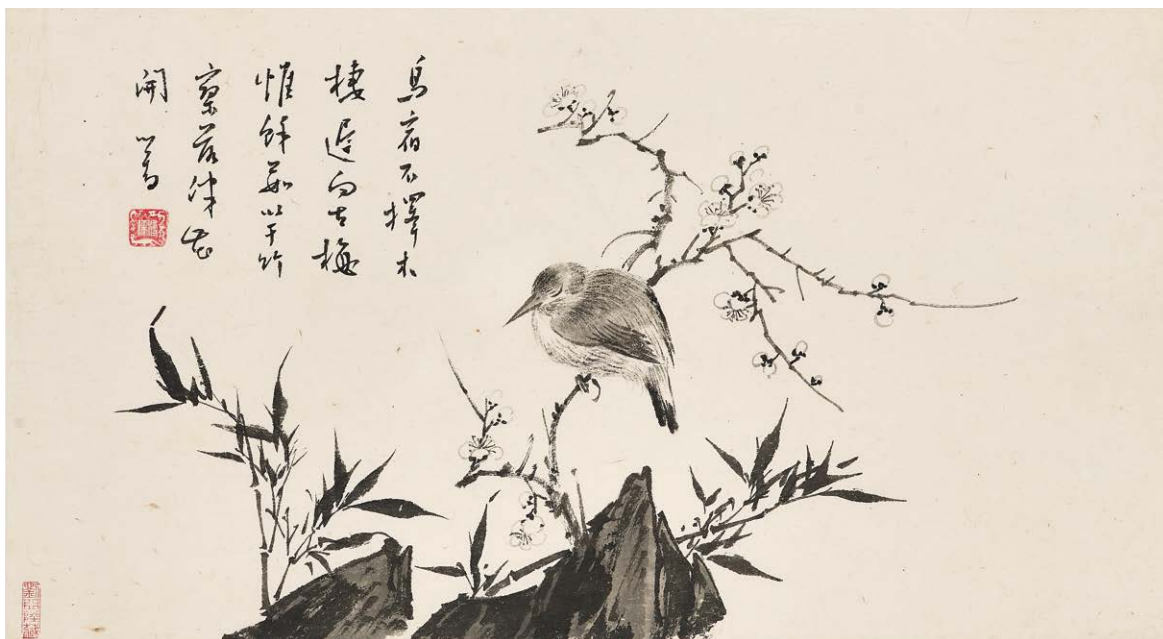 鳥宿不擇木
棲遲向古梅
惟餘數竿竹
寥落伴花
開 心畬